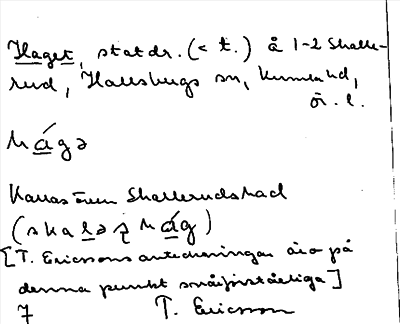 Haget, statdr. (< t.) å 1-2 Skalle-
rud, Hallsbergs sn, Kumla hd,
Ör. l.
hágə
Kallas även Skallerudshad
(skaləʂhág)
[T. Ericssons anteckningar äro på
denna punkt svårförståeliga]
T. Ericsson